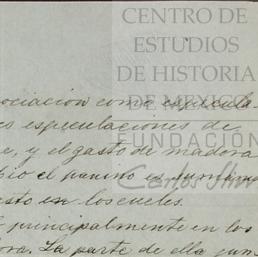 CENTRO DE
ESTUDIOS
DE HISTORIA
DE MEXICO
FUNDACIÓN
Carlos Slim
ociacion como especula-
es especulaciones de
e, y el gasto de madera
el panino es
esto en los cueles.
principalmente en los
ora. La parte de ella